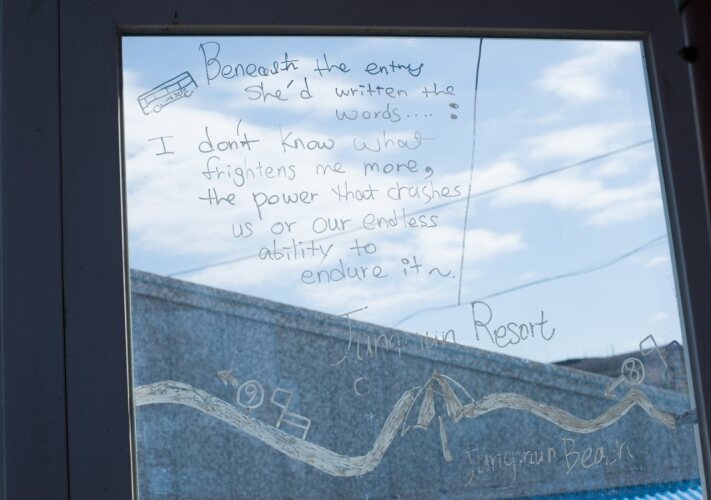 Beneath the entry
She'd written the
words.... :
I don't know what
frightens me more,
the power that crushes
us or our endless
ability to
endure it ~.
Jungmun Resort
9
8
Jungmun Beach